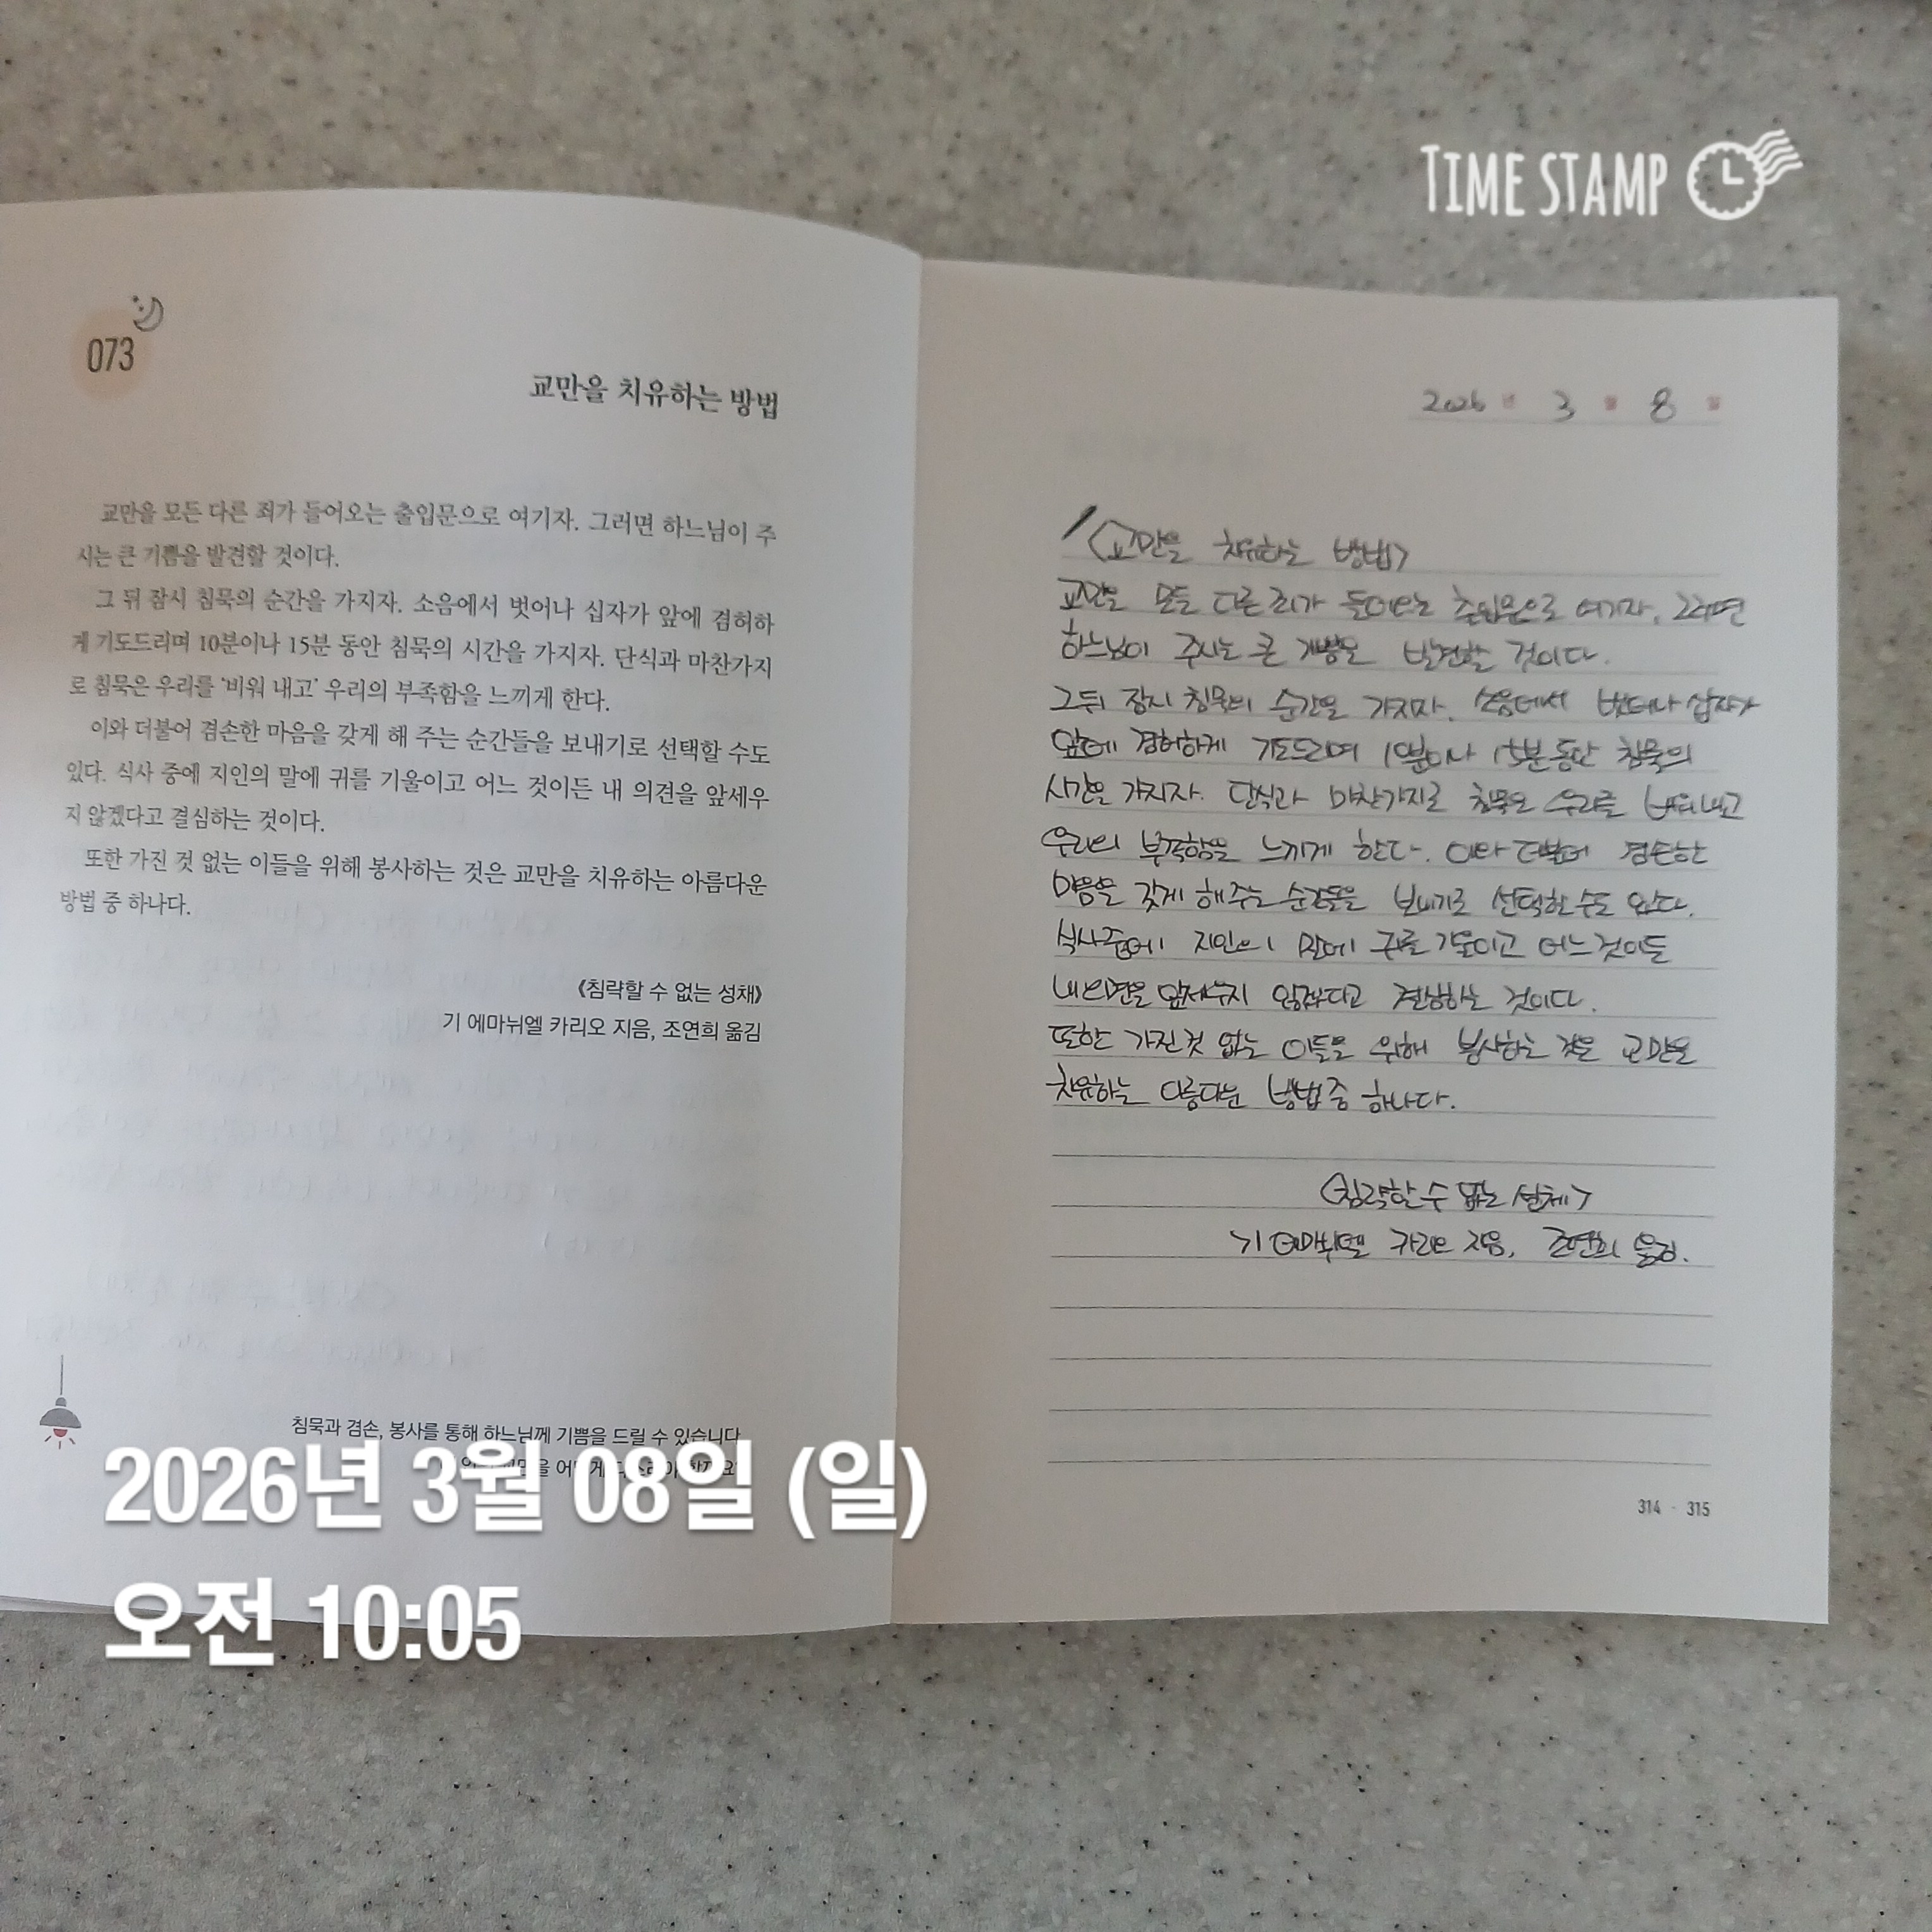 TIME STAMP
073
교만을 치유하는 방법
교만을 모든 다른 죄가 들어오는 출입문으로 여기자. 그러면 하느님이 주
시는 큰 기쁨을 발견할 것이다.
그 뒤 잠시 침묵의 순간을 가지자. 소음에서 벗어나 십자가 앞에 겸허하
게 기도드리며 10분이나 15분 동안 침묵의 시간을 가지자. 단식과 마찬가지
로 침묵은 우리를 '비워 내고' 우리의 부족함을 느끼게 한다.
이와 더불어 겸손한 마음을 갖게 해 주는 순간들을 보내기로 선택할 수도
있다. 식사 중에 지인의 말에 귀를 기울이고 어느 것이든 내 의견을 앞세우
지 않겠다고 결심하는 것이다.
또한 가진 것 없는 이들을 위해 봉사하는 것은 교만을 치유하는 아름다운
방법 중 하나다.
《침략할 수 없는 성채》
기 에마뉘엘 카리오 지음, 조연희 옮김
침묵과 겸손, 봉사를 통해 하느님께 기쁨을 드릴 수 있습니다
2026년 3월 8일
<교만을 치유하는 방법>
교만을 모든 다른 죄가 들어오는 출입문으로 여기자. 그러면
하느님이 주시는 큰 기쁨을 발견할 것이다.
그 뒤 잠시 침묵의 순간을 가지자. 소음에서 벗어나 십자가
앞에 겸허하게 기도드리며 10분이나 15분 동안 침묵의
시간을 가지자. 단식과 마찬가지로 침묵은 우리를 비워내고
우리의 부족함을 느끼게 한다. 이와 더불어 겸손한
마음을 갖게 해주는 순간들을 보내기로 선택할 수도 있다.
식사중에 지인의 말에 귀를 기울이고 어느것이든
내 의견을 앞세우지 않겠다고 결심하는 것이다.
또한 가진것 없는 이들을 위해 봉사하는 것은 교만을
치유하는 아름다운 방법중 하나다.
<침략할 수 없는 성채>
기 에마뉘엘 카리오 지음, 조연희 옮김.
314 · 315
2026년 3월 08일 (일)
오전 10:05